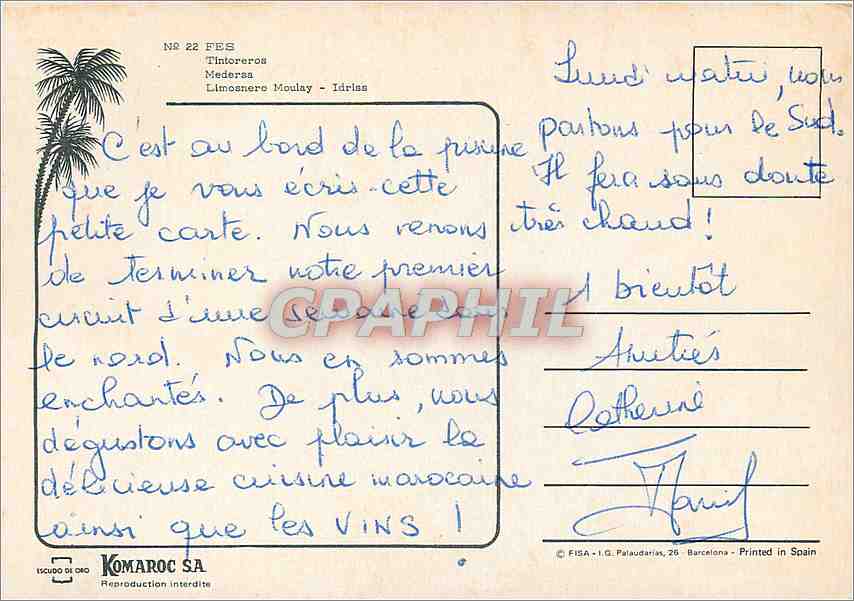 Nº 22 FES
Tintoreros
Medersa
Limosnero Moulay - Idriss
C'est au bord de la piscine
que je vous écris cette
petite carte. Nous venons
de terminer notre premier
circuit d'une semaine dans
le nord. Nous en sommes
enchantés. De plus, nous
dégustons avec plaisir la
délicieuse cuisine marocaine
ainsi que les VINS !
Lundi matin, nous
partons pour le Sud.
Il fera sans doute
très chaud !
A bientôt
Amitiés
Catherine
CPAPHIL
ESCUDO DE ORO
KOMAROC S.A.
Reproduction interdite
© FISA - I.G. Palaudarias, 26 - Barcelona - Printed in Spain